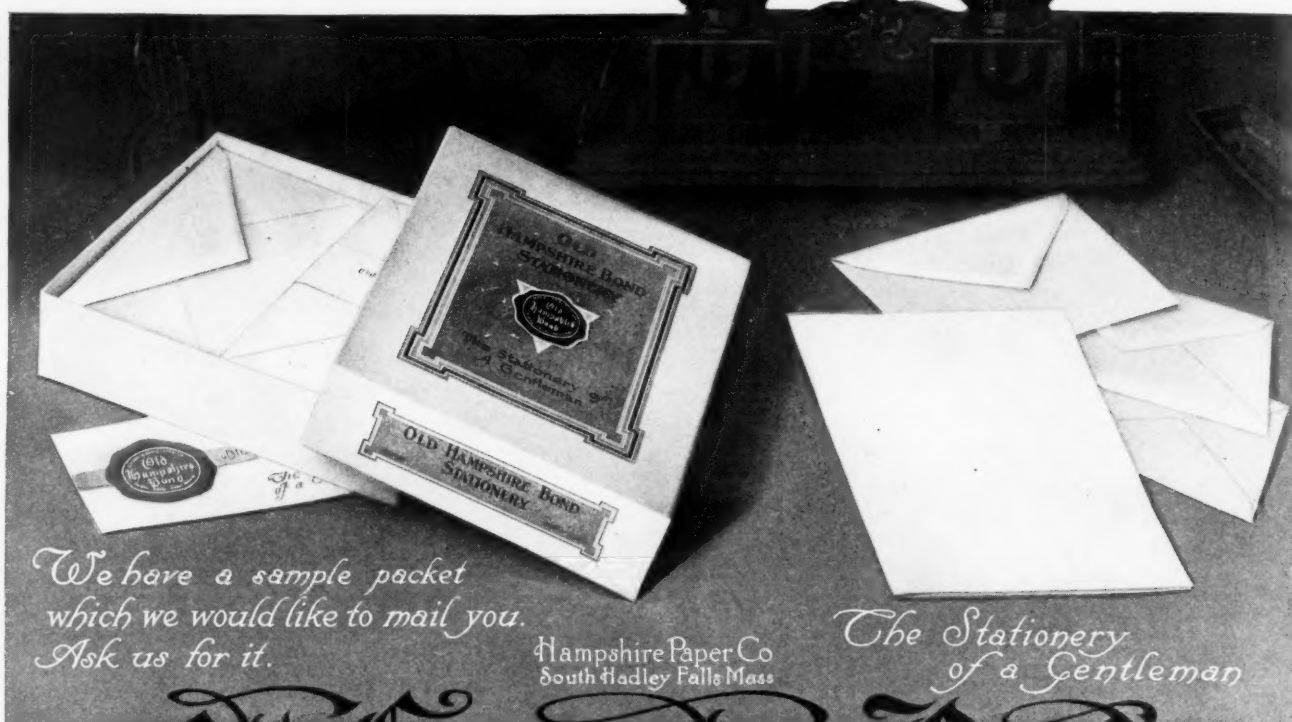 OLD
HAMPSHIRE BOND
STATIONERY
Old
Hampshire
Bond
The Stationery of
A Gentleman
OLD HAMPSHIRE BOND
STATIONERY
Old
Hampshire
Bond
The
of a
We have a sample packet
which we would like to mail you.
Ask us for it.
Hampshire Paper Co
South Hadley Falls Mass
The Stationery
of a Gentleman